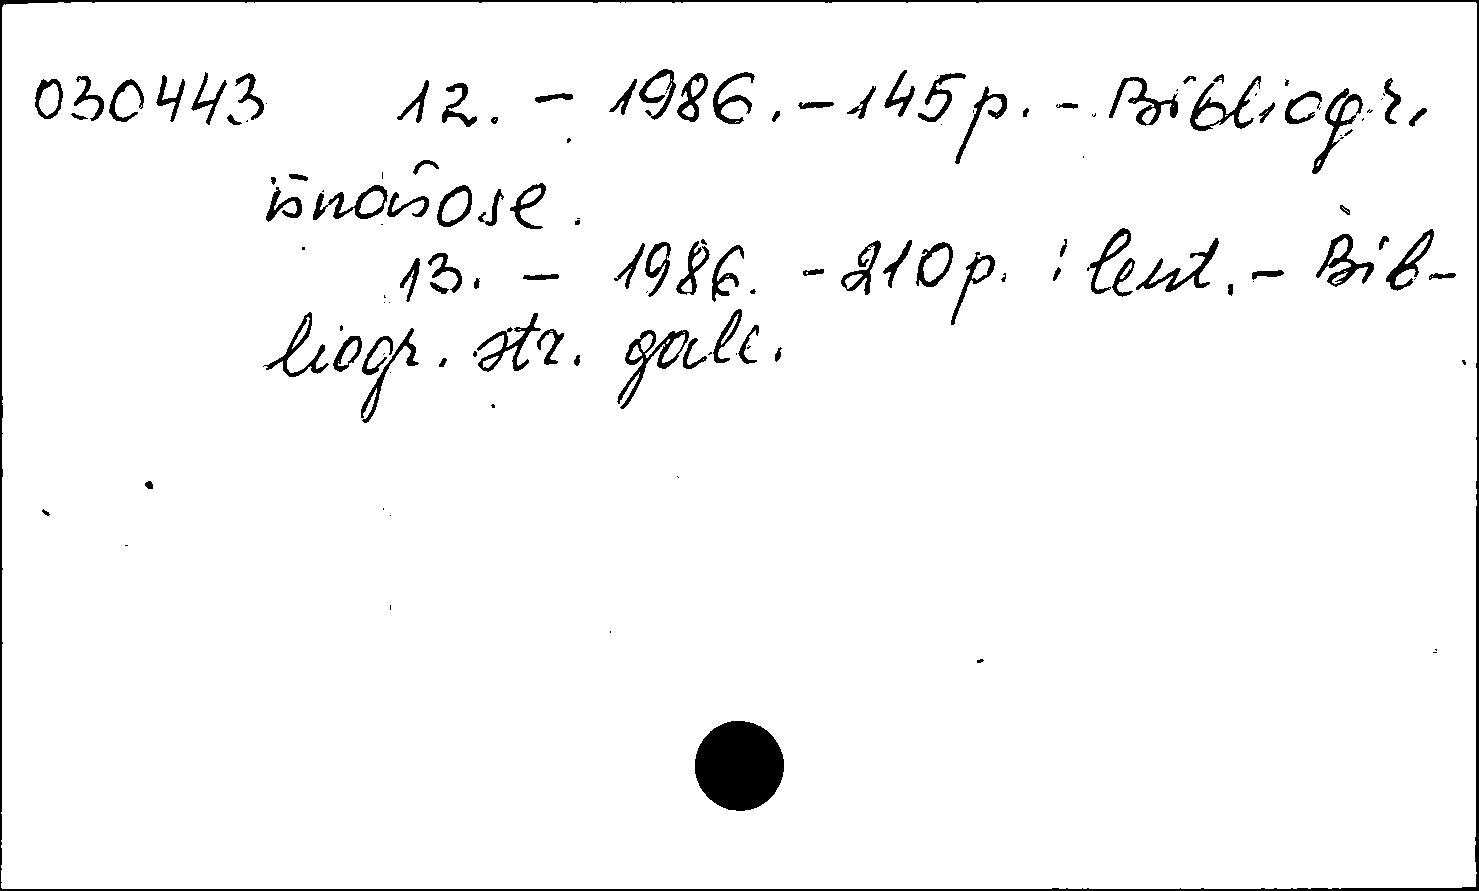 030443 12. – 1986. – 145 p. – Bibliogr.
išnašose.
13. – 1986. – 210 p. : lent. – Bib-
liogr. str. gale.